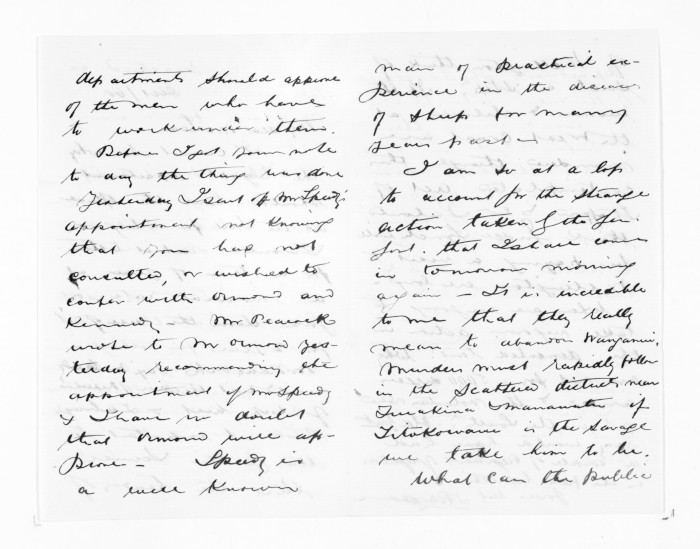 departments should approve
of the men who have
to work under them.
Before I got your note
to day the thing was done
Yesterday I sent off Mr Speedy's
appointment not knowing
that you had not
consulted, or wished to
confer with Ormond and
Kennedy - Mr Peacock
wrote to Mr Ormond yes-
terday recommending the
appointment of Mr Speedy
& I have no doubt
that Ormond will ap-
prove - Speedy is
a well known
man of practical ex-
perience in the diseases
of sheep for many
years past -
I am so at a loss
to account for the strange
action taken by the
that I shall come
in tomorrow morning
again - It is incredible
to me that they really
mean to abandon Wanganui.
Murders must rapidly follow
in the scattered districts near
Turakina Manawatu if
Titokowaru is the savage
we take him to be.
What can the public